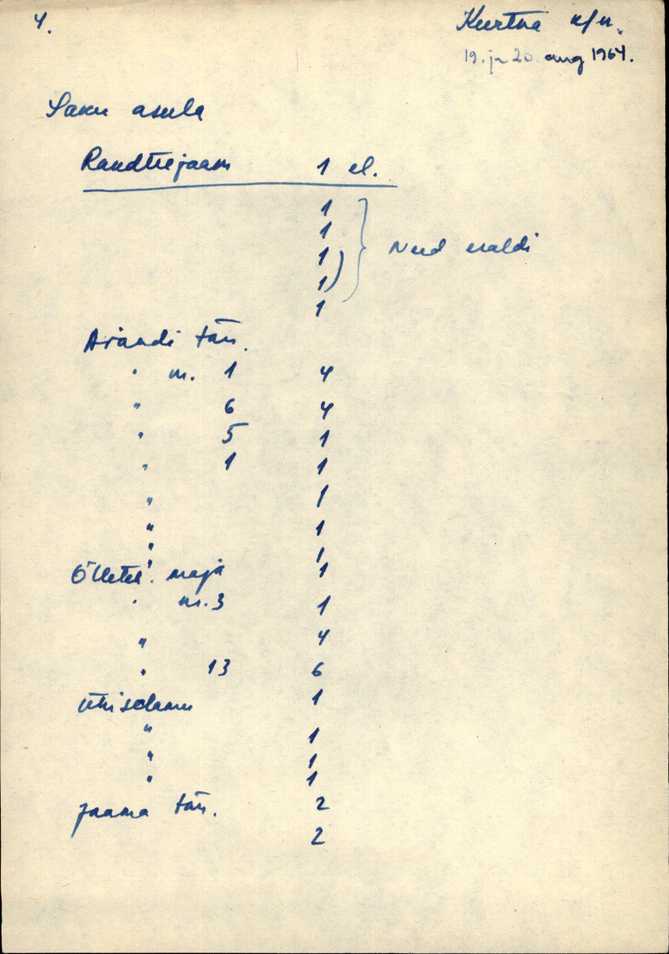 4.
Kurtna k/n.
19. ja 20. aug 1964.
Saku asula
Raudteejaam 1 el.
1
1
1 Need eraldi
1
1
Aiandi tän.
" nr. 1 4
" 6 4
" 5 1
" 1 1
" 1
" 1
" 1
Õlleteh. maja 1
" nr. 3 1
" 4
" 13 6
Ühiselamu 1
" 1
" 1
" 1
Jaama tän. 2
2